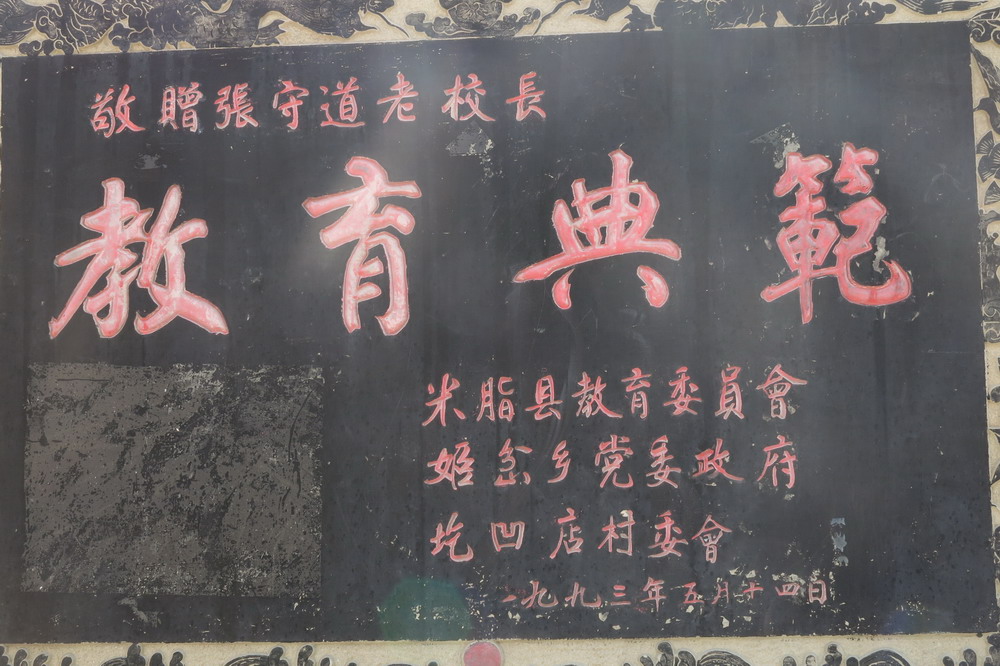 敬贈張守道老校長
教育典範
米脂县教育委員會
姬岔乡党委政府
圪凹店村委會
一九九三年五月十四日